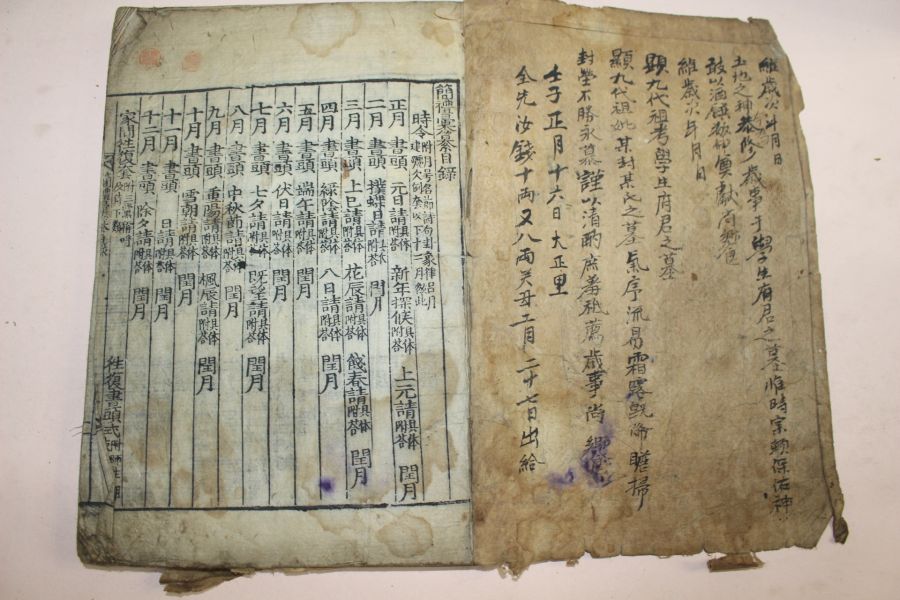 維歲次年月日
土地之神恭修歲事于學生府君之墓惟時宗賴保佑神
敢以酒饌敬伸奠獻尚饗
維歲次年月日
顯九代祖考學生府君之墓
顯九代祖妣某封某氏之墓氣序流易霜露旣降瞻掃
封塋不勝永慕謹以清酌庶羞祗薦歲事尚饗
壬子正月十六日大正里
全先汝錢十兩又八兩 二十七日出給
簡禮彙纂目錄
時令
正月 書頭 元日請具体附答 新年探候具体附答 上元請具体附答 閏月
二月 書頭 撲蝶日請具体附答 閏月
三月 書頭 上巳請具体附答 花辰請具体附答 餞春請具体附答 閏月
四月 書頭 綠陰請具体附答 八日請具体附答 閏月
五月 書頭 端午請具体附答 閏月
六月 書頭 伏日請具体附答 閏月
七月 書頭 七夕請具体附答 旣望請具体附答 閏月
八月 書頭 中秋節請具体附答 閏月
九月 書頭 重陽請具体附答 楓辰請具体附答 閏月
十月 書頭 雪朝請具体附答 閏月
十一月 書頭 日請具体附答 閏月
十二月 書頭 除夕請具体附答 閏月
家間往復套 往復書頭式